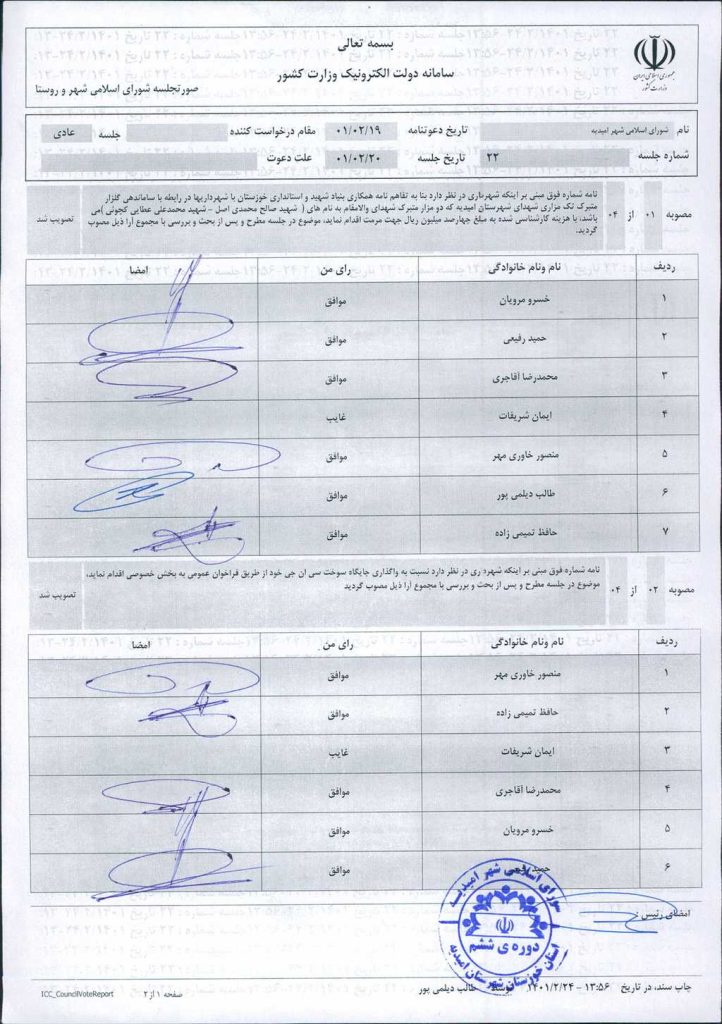 بسمه تعالی
سامانه دولت الکترونیک وزارت کشور
صورتجلسه شورای اسلامی شهر و روستا
جمهوری اسلامی ایران
وزارت کشور
نام شورای اسلامی شهر امیدیه تاریخ دعوتنامه ۰۱/۰۲/۱۹ مقام درخواست کننده جلسه عادی
شماره جلسه ۲۲ تاریخ جلسه ۰۱/۰۲/۲۰ علت دعوت
مصوبه ۰۱ از ۰۴
نامه شماره فوق مبنی بر اینکه شهرداری در نظر دارد بنا به تفاهم نامه همکاری بنیاد شهید و استانداری خوزستان با شهرداریها در رابطه با ساماندهی گلزار
متبرک تک مزاری شهدای شهرستان امیدیه که دو مزار متبرک شهدای والامقام به نام های ( شهید صالح محمدی اصل - شهید محمدعلی عطایی کچوئی )می
باشد، با هزینه کارشناسی شده به مبلغ چهارصد میلیون ریال جهت مرمت اقدام نماید، موضوع در جلسه مطرح و پس از بحث و بررسی با مجموع آرا ذیل مصوب
گردید.
تصویب شد
ردیف نام ونام خانوادگی رای من امضا
۱ خسرو مرویان موافق
۲ حمید رفیعی موافق
۳ محمدرضا آقاجری موافق
۴ ایمان شریفات غایب
۵ منصور خاوری مهر موافق
۶ طالب دیلمی پور موافق
۷ حافظ تمیمی زاده موافق
مصوبه ۰۲ از ۰۴
نامه شماره فوق مبنی بر اینکه شهرداری در نظر دارد نسبت به واگذاری جایگاه سوخت سی ان جی خود از طریق فراخوان عمومی به بخش خصوصی اقدام نماید،
موضوع در جلسه مطرح و پس از بحث و بررسی با مجموع آرا ذیل مصوب گردید
تصویب شد
ردیف نام ونام خانوادگی رای من امضا
۱ منصور خاوری مهر موافق
۲ حافظ تمیمی زاده موافق
۳ ایمان شریفات غایب
۴ محمدرضا آقاجری موافق
۵ خسرو مرویان موافق
۶ حمید رفیعی موافق
امضای رئیس :
شورای اسلامی شهر امیدیه
دوره ی ششم
استان خوزستان شهرستان امیدیه
چاپ سند، در تاریخ ۱۳:۵۶ - ۱۴۰۱/۲/۲۴ توسط طالب دیلمی پور
صفحه ۱ از ۲
ICC_CouncilVoteReport